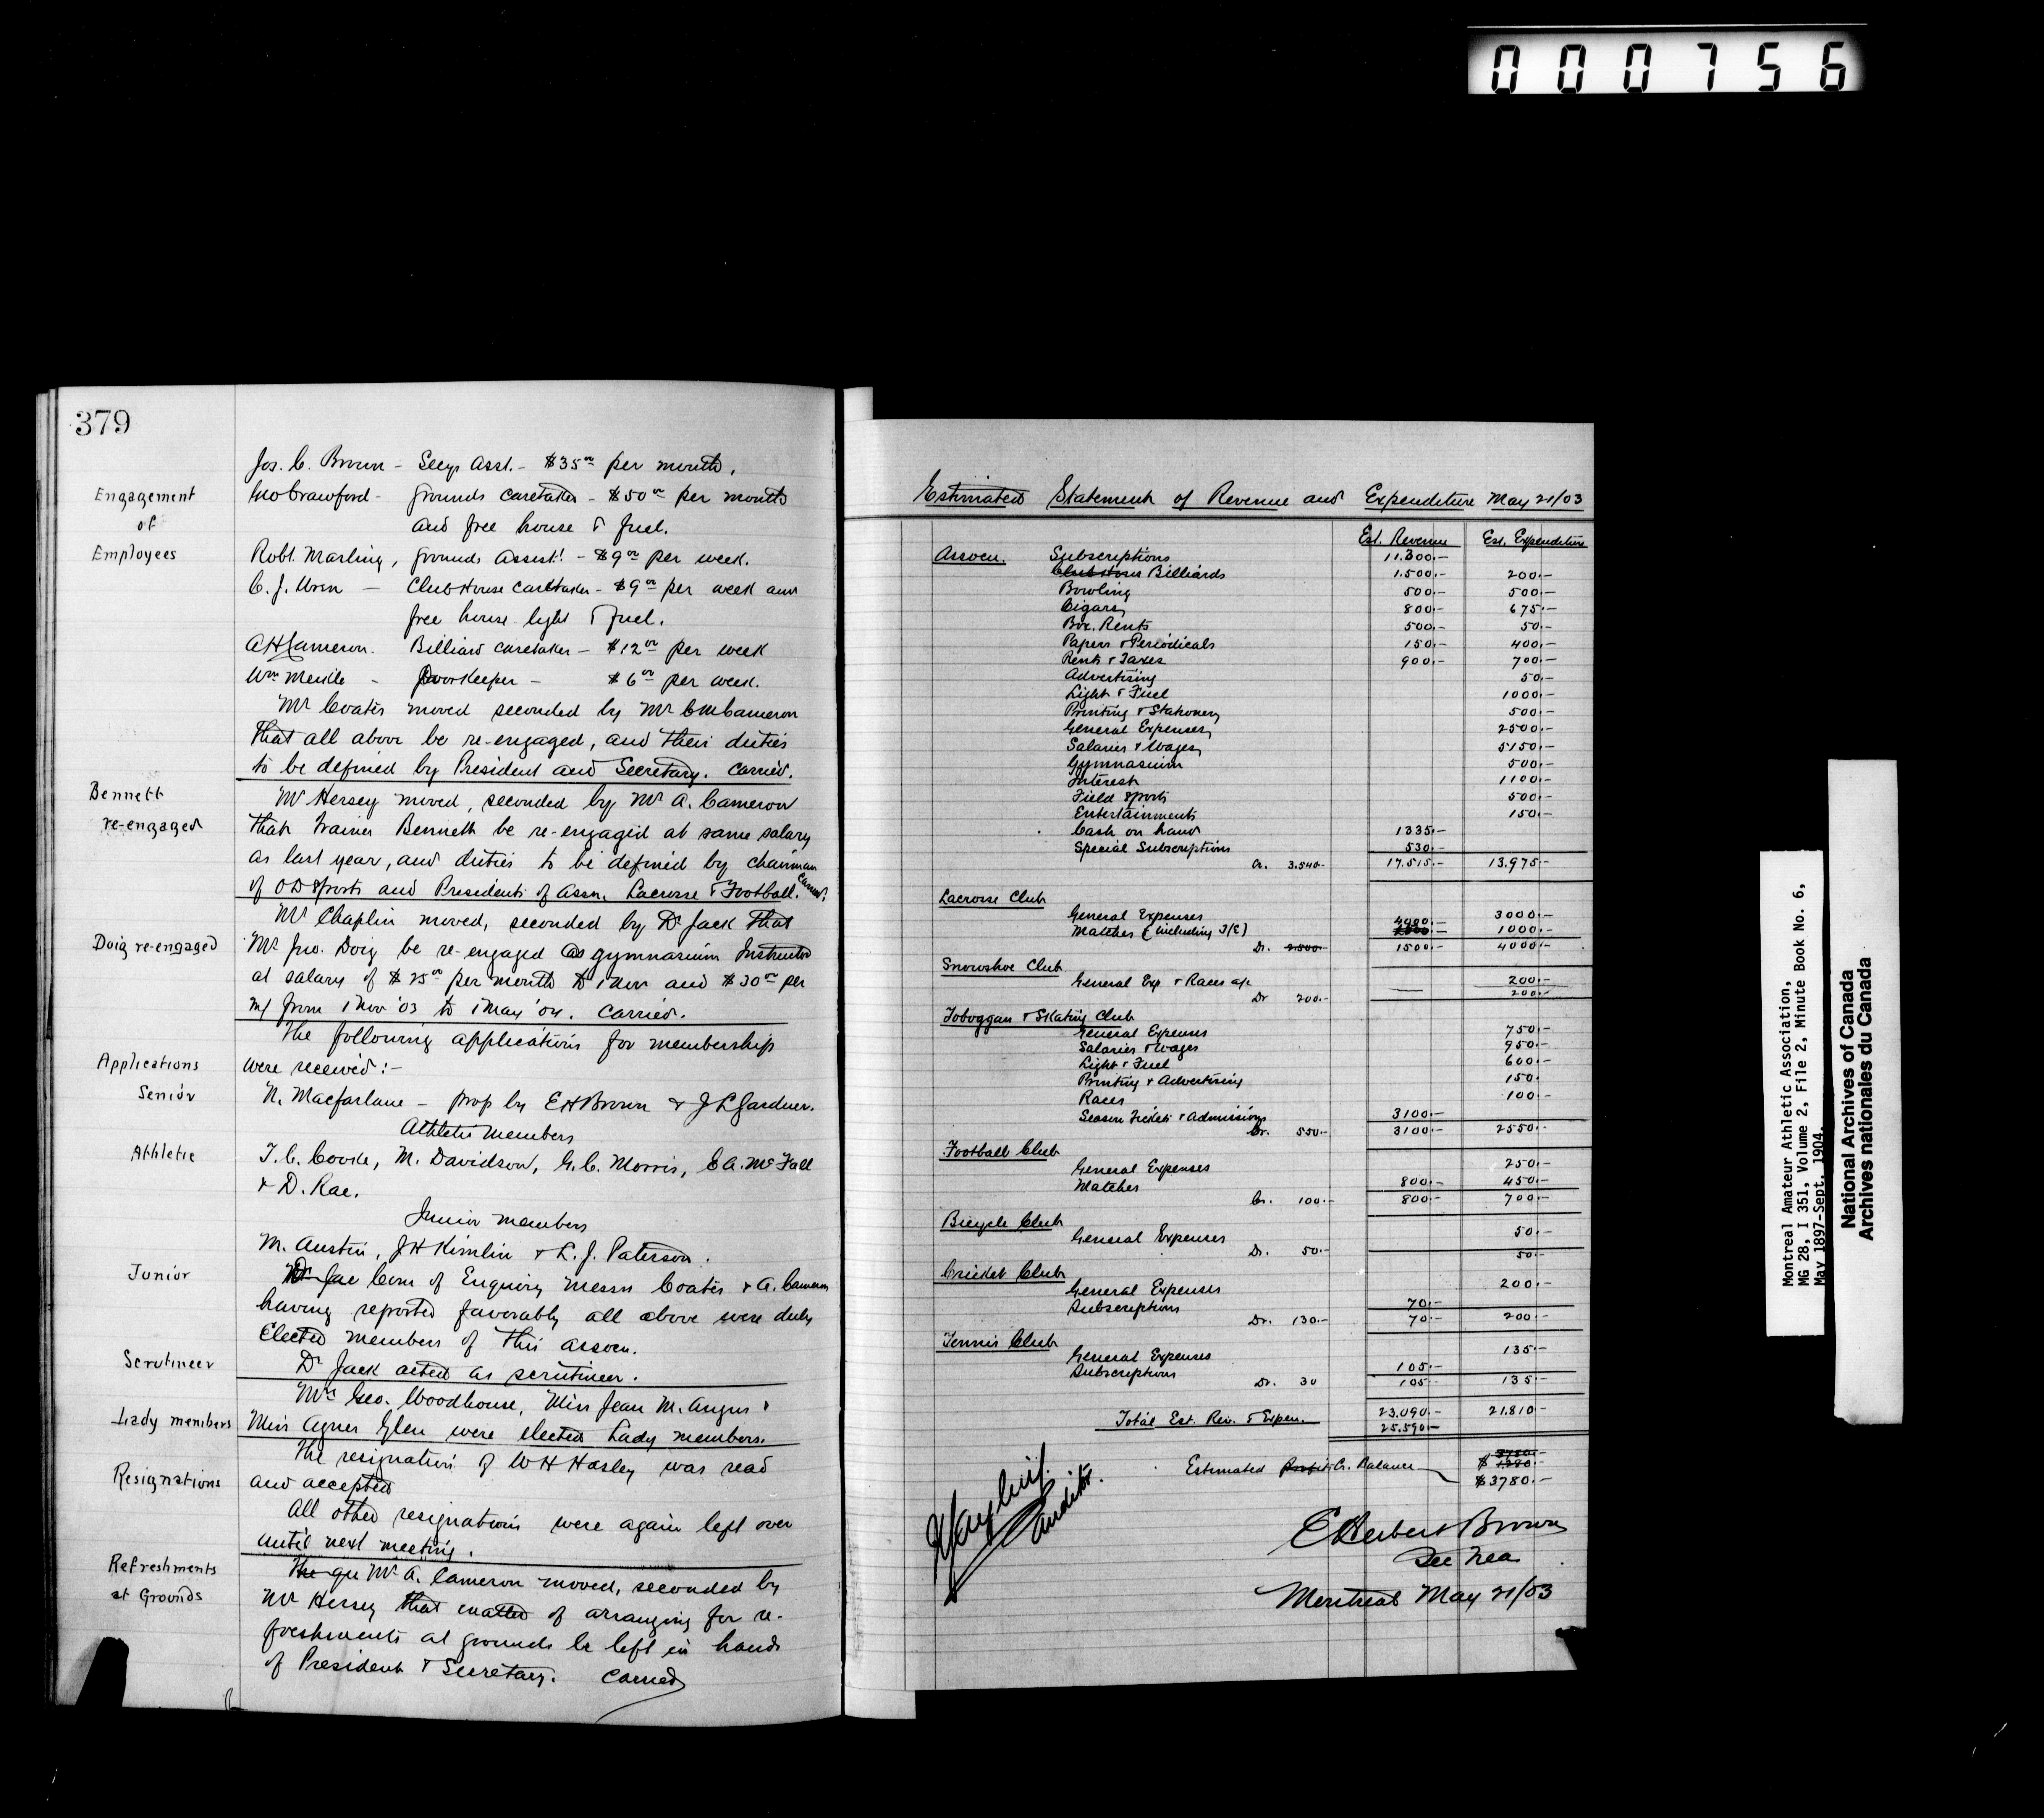 000756
379
Jos. C. Brown - Secys Asst. - $35.00 per month.
Engagement
of
Employees
Geo Crawford - Grounds Caretaker - $50.00 per month
and free house & fuel.
Robt. Marling, Grounds Assist! - $9.00 per week.
C. J. Uren - Club House Caretaker - $9.00 per week and
free house light & fuel.
A H Cameron. Billiard Caretaker - $12.00 per week
Wm Meikle - Doorkeeper - $6.00 per week.
Mr Coates moved seconded by Mr C M Cameron
that all above be re-engaged, and their duties
to be defined by President and Secretary. Carried.
Bennett
re-engaged
Mr Hersey moved, seconded by Mr A. Cameron
that trainer Bennett be re-engaged at same salary
as last year, and duties to be defined by chairman
of O D Sports and Presidents of Assn. Lacrosse & Football. Carried.
Mr Chaplin moved, seconded by Dr Jack that
Doig re-engaged
Mr Jno. Doig be re-engaged as gymnasium Instructor
at salary of $25.00 per month to 1 Nov and $30.00 per
m/ from 1 Nov '03 to 1 May '04. Carried.
The following applications for membership
Applications
were received :-
Senior
N. Macfarlane - prop by E H Brown & J L Gardner.
Athletic Members
Athletic
T. C. Cooke, M. Davidson, G. C. Morris, E A. McFall
& D. Rae.
Junior members
M. Austin, J H Kimlin & L. J. Paterson.
Junior
Com of Enquiry Messrs Coates & A. Cameron
having reported favorably all above were duly
Elected members of this assocn.
Scrutineer
Dr Jack acted as scrutineer.
Mrs Geo. Woodhouse, Miss Jean M. Angus &
Lady members
Miss Agnes Glen were elected Lady members.
Resignations
The resignation of W H Hasley was read
and accepted
All other resignations were again left over
until next meeting.
Refreshments
at Grounds
Mr A. Cameron moved, seconded by
Mr Hersey that matter of arranging for re-
freshments at grounds be left in hands
of President & Secretary. Carried
Estimated Statement of Revenue and Expenditure May 21/03
Est. Revenue Est. Expenditure
Assocn. Subscriptions 11.300.-
Club House Billiards 1.500.- 200.-
Bowling 500.- 500.-
Cigars 800.- 675.-
Box Rents 500.- 50.-
Papers & Periodicals 150.- 400.-
Rents & Taxes 900.- 700.-
Advertising 50.-
Light & Fuel 1000.-
Printing & Stationery 500.-
General Expenses 2500.-
Salaries & Wages 5150.-
Gymnasium 500.-
Interest 1100.-
Field Sports 500.-
Entertainments 150.-
Cash on hand 1335.-
Special Subscriptions 530.-
Cr. 3.540.- 17.515.- 13.975.-
Lacrosse Club
General Expenses 3000.-
Matches (including I/C) 4000.- 1000.-
Dr. 2.500.- 1500.- 4000.-
Snowshoe Club
General Exp. & Races a/c 200.-
Dr 200.- — 200.-
Toboggan & Skating Club
General Expenses 750.-
Salaries & Wages 950.-
Light & Fuel 600.-
Printing & Advertising 150.
Races 100.-
Season Tickets & Admissions 3100.-
Cr. 550.- 3100.- 2550.-
Football Club
General Expenses 250.-
Matches 800.- 450.-
Cr. 100.- 800.- 700.-
Bicycle Club
General Expenses 50.-
Dr. 50.- 50.-
Cricket Club
General Expenses 200.-
Subscriptions 70.-
Dr. 130.- 70.- 200.-
Tennis Club
General Expenses 135.-
Subscriptions 105.-
Dr. 30 105.- 135.-
Total Est. Rev. & Expen. 23.090.- 21.810.-
25.590.-
3780.-
Estimated Profit Cr. Balance $ 1.280.-
$3780.-
Auditor.
E Herbert Brown
Sec Trea
Montreal May 21/03
Montreal Amateur Athletic Association,
MG 28, I 351, Volume 2, File 2, Minute Book No. 6,
May 1897-Sept. 1904.
National Archives of Canada
Archives nationales du Canada